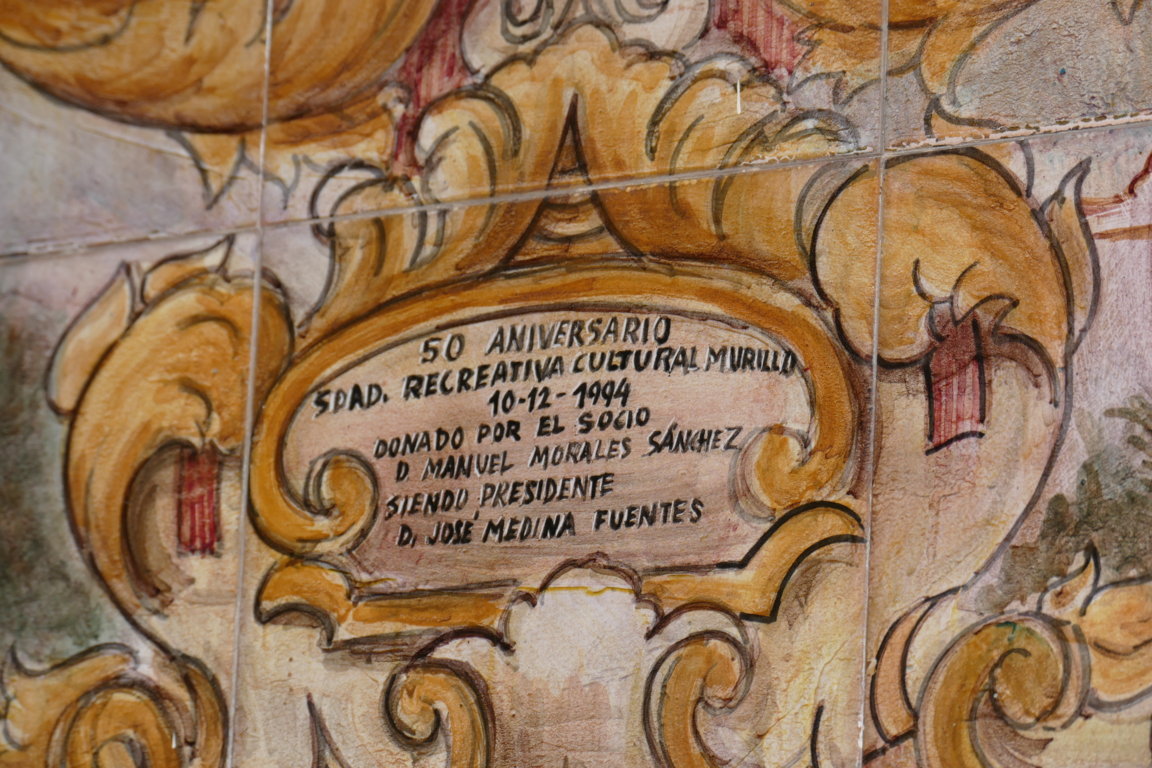 50 ANIVERSARIO
SDAD. RECREATIVA CULTURAL MURILLO
10-12-1994
DONADO POR EL SOCIO
D MANUEL MORALES SÁNCHEZ
SIENDO PRESIDENTE
D. JOSÉ MEDINA FUENTES